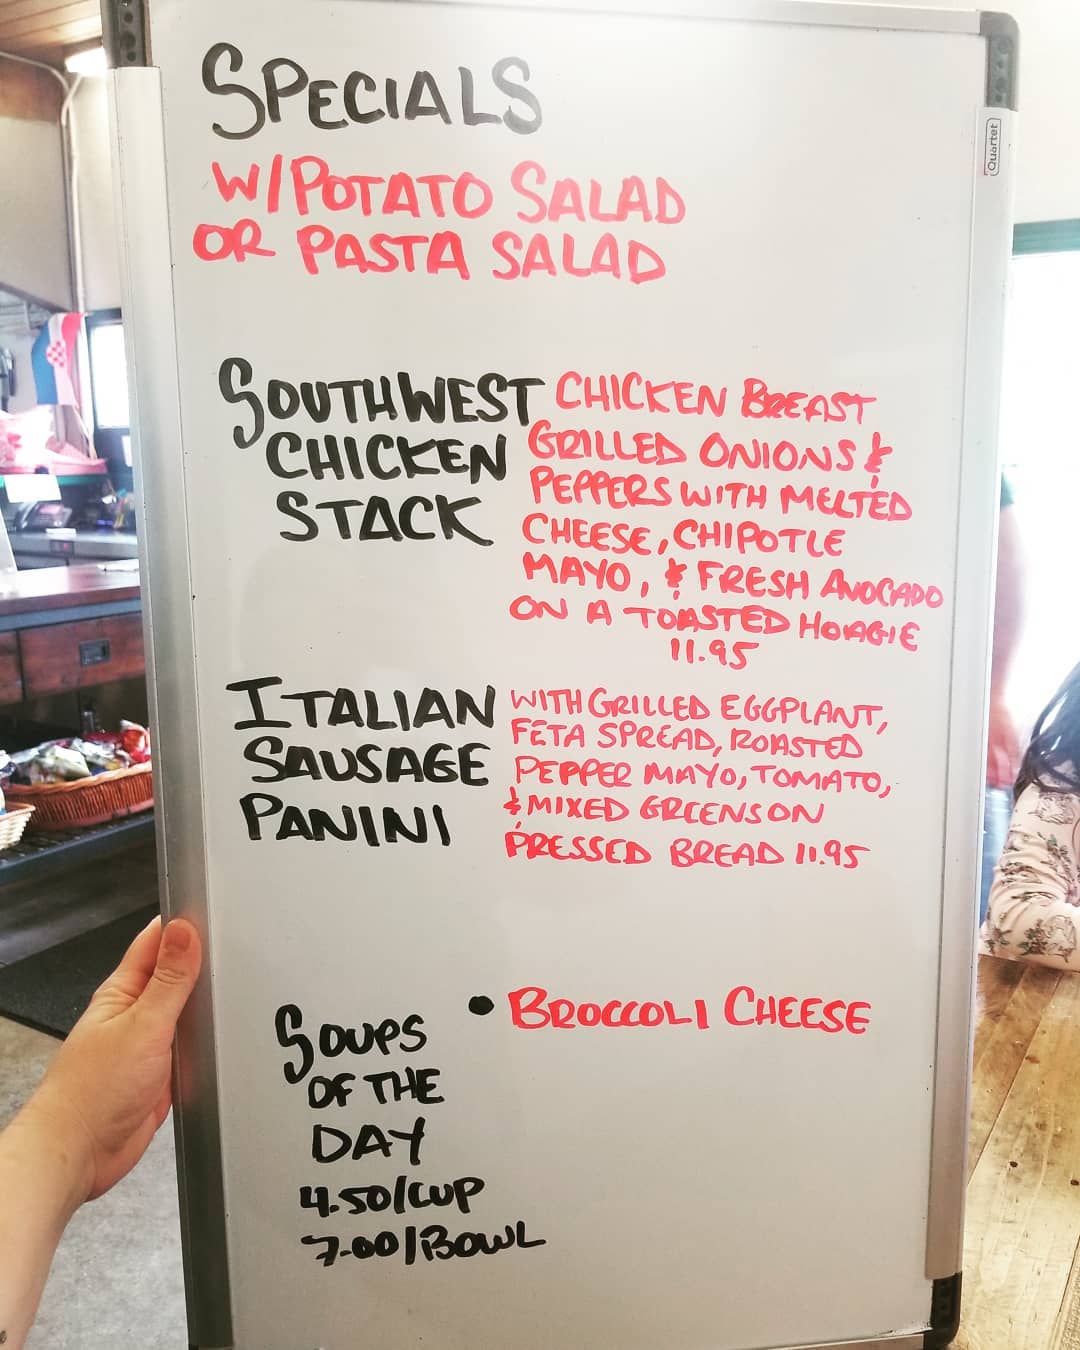 SPECIALS
W/POTATO SALAD
OR PASTA SALAD
SOUTHWEST
CHICKEN
STACK
CHICKEN BREAST
GRILLED ONIONS &
PEPPERS WITH MELTED
CHEESE, CHIPOTLE
MAYO, & FRESH AVOCADO
ON A TOASTED HOAGIE
11.95
ITALIAN
SAUSAGE
PANINI
WITH GRILLED EGGPLANT,
FETA SPREAD, ROASTED
PEPPER MAYO, TOMATO,
& MIXED GREENS ON
PRESSED BREAD 11.95
SOUPS
OF THE
DAY
4.50/CUP
7.00/BOWL
• BROCCOLI CHEESE
Quartet